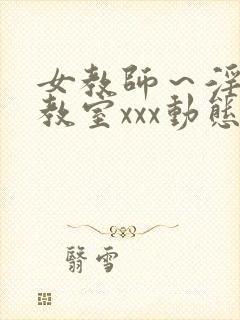 女教师～淫
教室xxx動態
翳雪